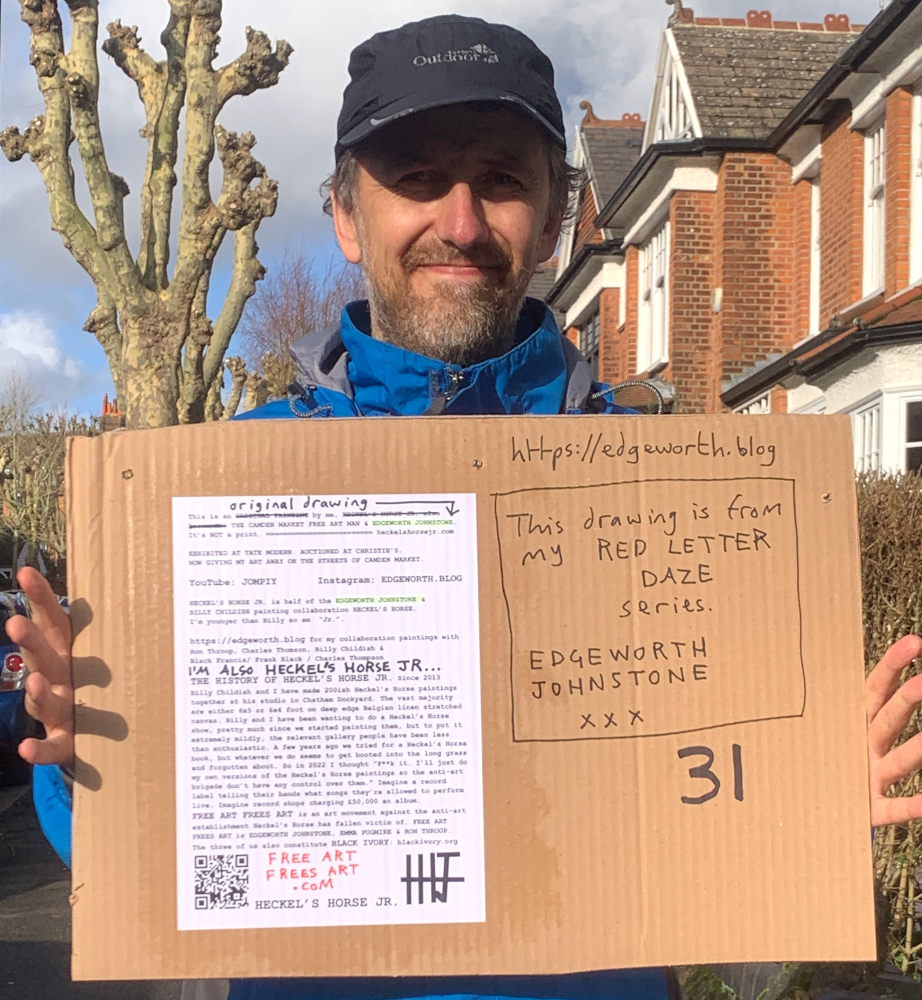 Outdoor
https://edgeworth.blog
original drawing
This is an ORIGINAL PAINTING by me, HECKEL'S HORSE JR.
THE CAMDEN MARKET FREE ART MAN & EDGEWORTH JOHNSTONE.
It's NOT a print. heckelshorsejr.com
EXHIBITED AT TATE MODERN. AUCTIONED AT CHRISTIE'S.
NOW GIVING MY ART AWAY ON THE STREETS OF CAMDEN MARKET.
YouTube: JOMPIY Instagram: EDGEWORTH.BLOG
HECKEL'S HORSE JR. is half of the EDGEWORTH JOHNSTONE &
BILLY CHILDISH painting collaboration HECKEL'S HORSE.
I'm younger than Billy so am "Jr.".
https://edgeworth.blog for my collaboration paintings with
Ron Throop, Charles Thomson, Billy Childish &
Black Francis/ Frank Black / Charles Thompson
I'M ALSO HECKEL'S HORSE JR...
THE HISTORY OF HECKEL'S HORSE JR. Since 2013
Billy Childish and I have made 200ish Heckel's Horse paintings
together at his studio in Chatham Dockyard. The vast majority
are either 6x5 or 6x4 foot on deep edge Belgian linen stretched
canvas. Billy and I have been wanting to do a Heckel's Horse
show, pretty much since we started painting them, but to put it
extremely mildly, the relevant gallery people have been less
than enthusiastic. A few years ago we tried for a Heckel's Horse
book, but whatever we do seems to get booted into the long grass
and forgotten about. So in 2022 I thought "F**k it. I'll just do
my own versions of the Heckel's Horse paintings so the anti-art
brigade don't have any control over them." Imagine a record
label telling their bands what songs they're allowed to perform
live. Imagine record shops charging £50,000 an album.
FREE ART FREES ART is an art movement against the anti-art
establishment Heckel's Horse has fallen victim of. FREE ART
FREES ART is EDGEWORTH JOHNSTONE, EMMA PUGMIRE & RON THROOP.
The three of us also constitute BLACK IVORY: blackivory.org
FREE ART
FREES ART
.COM
HECKEL'S HORSE JR.
HHJ
This drawing is from
my RED LETTER
DAZE
series.
EDGEWORTH
JOHNSTONE
x x x
31